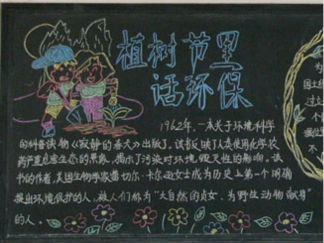 植树节里
话环保
1962年,一本关于环境科学
的科普读物《寂静的春天》出版了,该书反映了人类使用化学农
药严重危害生态的景象,揭示了污染对环境毁灭性的影响,该
书的作者,美国生物学家蕾切尔·卡尔逊女士成为历史上第一个明确
提出环境保护的人,被人们称为"大自然的贞女,为野生动物献身"
的人。
为